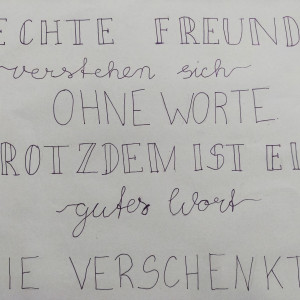 ECHTE FREUND
verstehen sich
OHNE WORTE
ROTZDEM IST EI
gutes Wort
IE VERSCHENKT